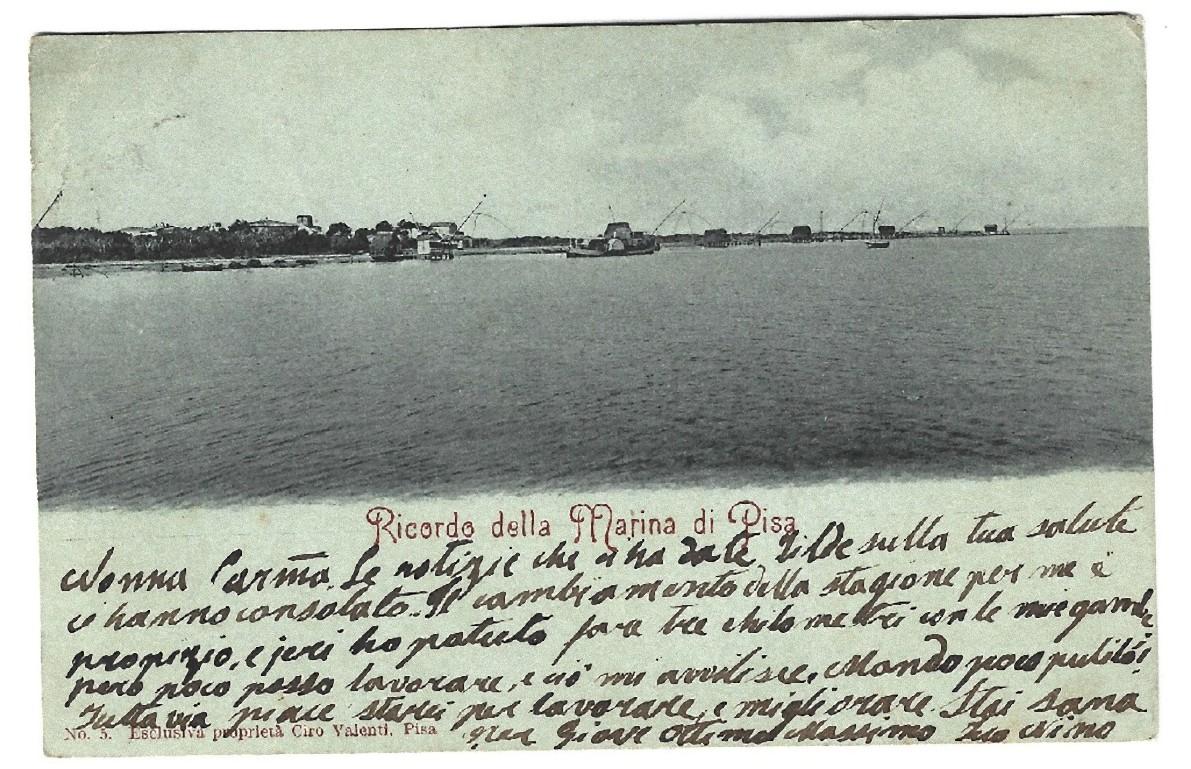 Ricordo della Marina di Pisa
Nonna Carm̄a. Le notizie che ci ha date Tilde sulla tua salute
ci hanno consolato. Il cambiamento della stagione per me è
propizio, e jeri ho potuto fare tre chilometri con le mie gambe
però poco posso lavorare, e ciò mi avvilisce. Mondo poco pulito!
Tuttavia piace starci per lavorare, e migliorare. Stai sana
per Giove Ottimo Massimo Tuo Nino
No. 5. Esclusiva proprietà Ciro Valenti, Pisa